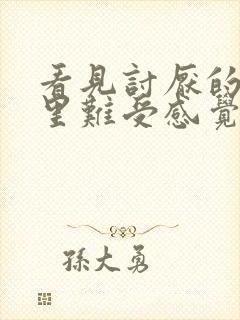 看見討厭的
里難受感覺
孫大勇